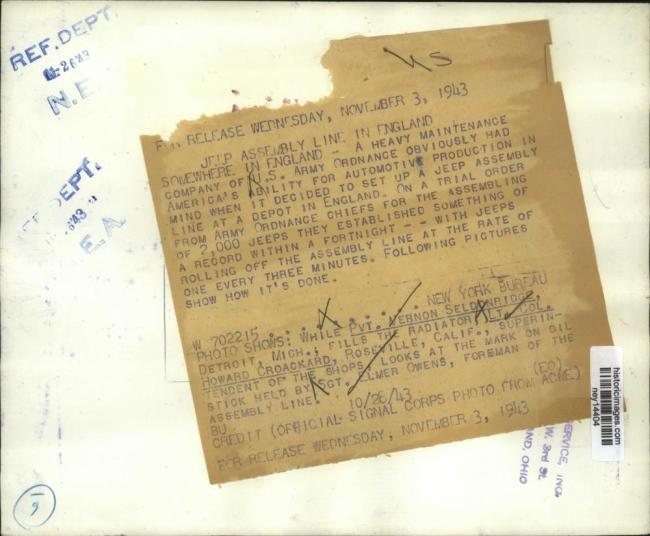 REF. DEPT.
N.E.
REF. DEPT.
E.A.
US
FOR RELEASE WEDNESDAY, NOVEMBER 3, 1943
JEEP ASSEMBLY LINE IN ENGLAND
SOMEWHERE IN ENGLAND - A HEAVY MAINTENANCE
COMPANY OF U.S. ARMY ORDNANCE OBVIOUSLY HAD
AMERICA'S ABILITY FOR AUTOMOTIVE PRODUCTION IN
MIND WHEN IT DECIDED TO SET UP A JEEP ASSEMBLY
LINE AT A DEPOT IN ENGLAND. ON A TRIAL ORDER
FROM ARMY ORDNANCE CHIEFS FOR THE ASSEMBLING
OF 2,000 JEEPS THEY ESTABLISHED SOMETHING OF
A RECORD WITHIN A FORTNIGHT -- WITH JEEPS
ROLLING OFF THE ASSEMBLY LINE AT THE RATE OF
ONE EVERY THREE MINUTES. FOLLOWING PICTURES
SHOW HOW IT'S DONE.
W 702215 . . . . . . . . . NEW YORK BUREAU
PHOTO SHOWS: WHILE PVT. VERNON SELDENRIDGE,
DETROIT, MICH., FILLS THE RADIATOR, LT. COL.
HOWARD CROACKARD, ROSEVILLE, CALIF., SUPERIN-
TENDENT OF THE SHOPS, LOOKS AT THE MARK ON OIL
STICK HELD BY SGT. ELMER OWENS, FOREMAN OF THE
ASSEMBLY LINE.
BU 10/28/43 (EO)
CREDIT (OFFICIAL SIGNAL CORPS PHOTO FROM ACME)
FOR RELEASE WEDNESDAY, NOVEMBER 3, 1943
SERVICE, INC.
W. 3rd St.
AND, OHIO
historicimages.com
ney14404